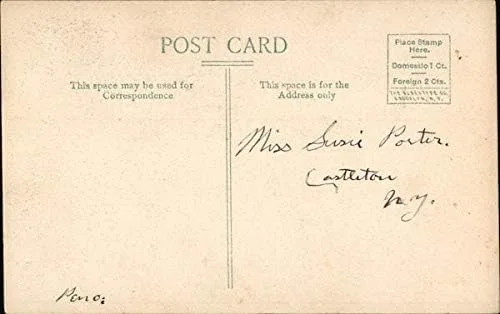 POST CARD
Place Stamp
Here.
Domestic 1 Ct.
Foreign 2 Cts.
THE ALBERTYPE CO.
BROOKLYN, N.Y.
This space may be used for
Correspondence
This space is for the
Address only
Miss Susie Porter.
Castleton
N.Y.